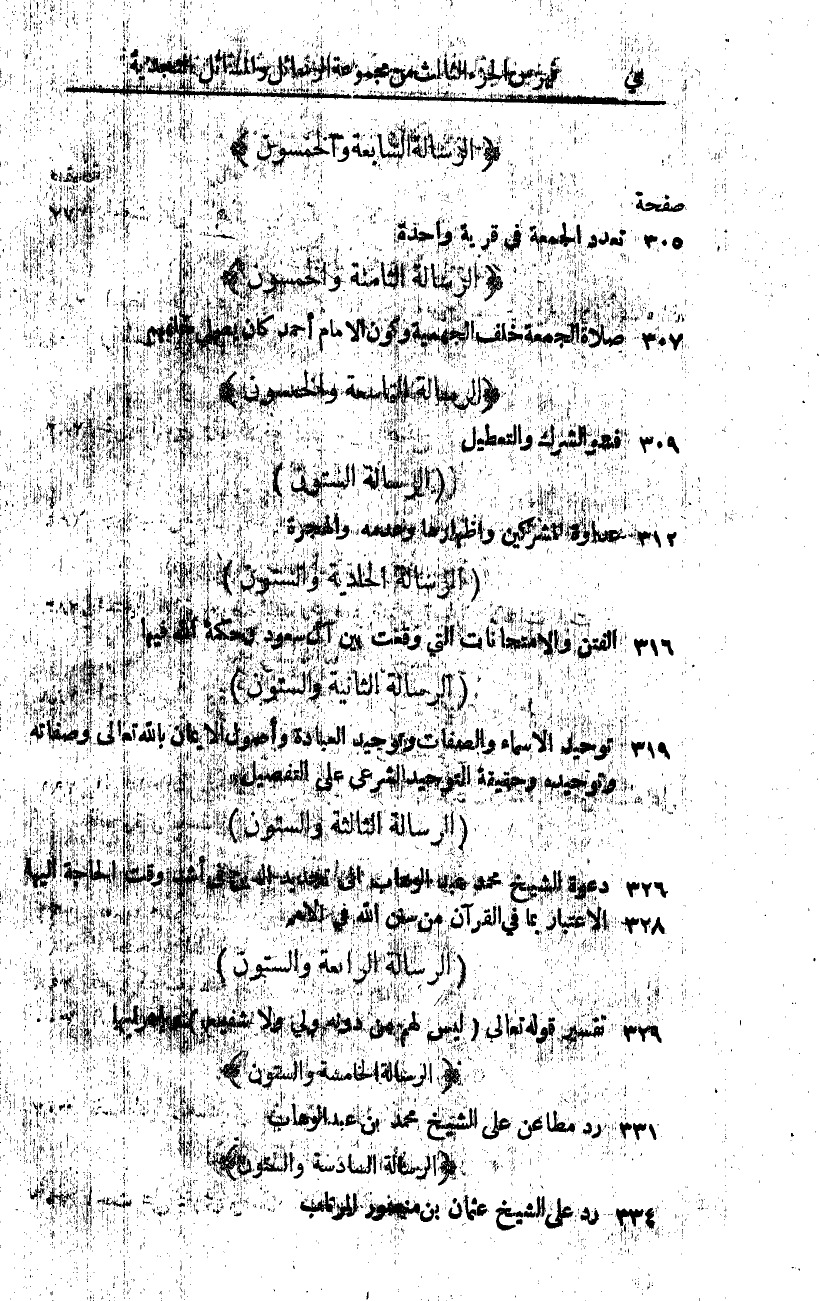 ي فهرس الجزء الثالث من مجموعة الرسائل والمسائل النجدية
﴿ الرسالة السابعة والخمسون ﴾
صفحة
٣٠٥ تعدد الجمعة في قرية واحدة
﴿ الرسالة الثامنة والخمسون ﴾
٣٠٧ صلاة الجمعة خلف الجهمية وكون الامام أحمد كان يصلي خلفهم
﴿ الرسالة التاسعة والخمسون ﴾
٣٠٩ فشو الشرك والتعطيل
( الرسالة الستون )
٣١٢ عداوة المشركين واظهارها وعدمه والهجرة
( الرسالة الحادية والستون )
٣١٦ الفتن والامتحانات التي وقعت بين آل سعود وحكمة الله فيها
( الرسالة الثانية والستون )
٣١٩ توحيد الاسماء والصفات وتوحيد العبادة وأصول الايمان بالله تعالى وصفاته
وتوحيده وحقيقة التوحيد الشرعي على التفصيل
( الرسالة الثالثة والستون )
٣٢٦ دعوة الشيخ محمد عبد الوهاب الى تجديد الدين في أشد وقت الحاجة اليها
٣٢٨ الاعتبار بما في القرآن من سنن الله في الامم
( الرسالة الرابعة والستون )
٣٢٩ تفسير قوله تعالى ( ليس لهم من دونه ولي ولا شفيع ) واعرابها
﴿ الرسالة الخامسة والستون ﴾
٣٣١ رد مطاعن على الشيخ محمد بن عبد الوهاب
﴿ الرسالة السادسة والستون ﴾
٣٣٤ رد على الشيخ عثمان بن منصور المرتاب